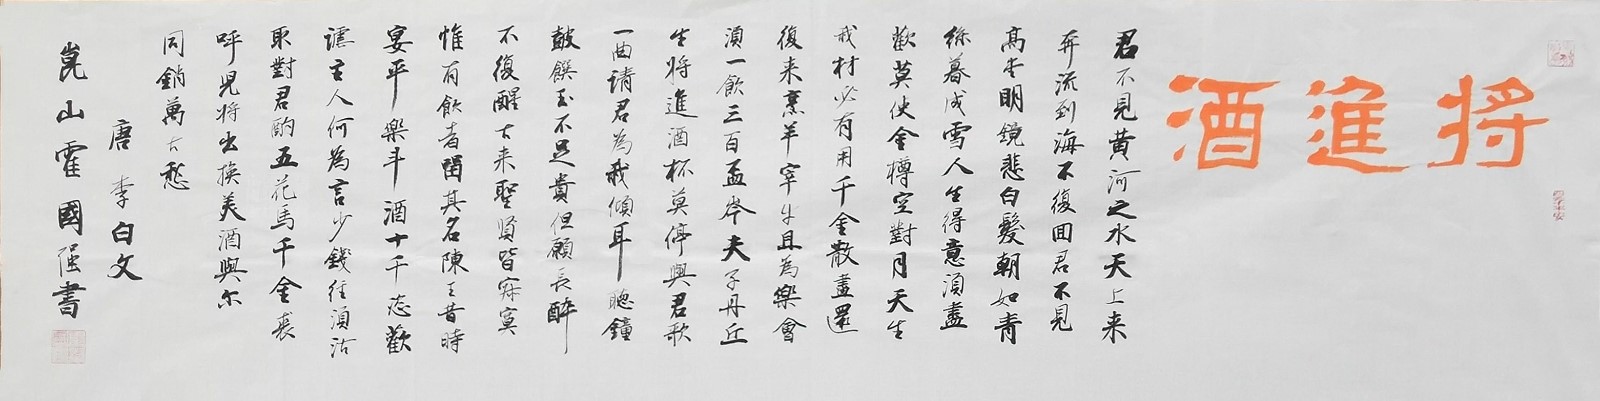 将進酒
君不見黄河之水天上来
奔流到海不復回君不見
髙堂明鏡悲白髮朝如青
絲暮成雪人生得意須盡
歡莫使金樽空對月天生
我材必有用千金散盡還
復来烹羊宰牛且為樂會
須一飲三百盃岑夫子丹丘
生将進酒杯莫停與君歌
一曲請君為我傾耳聽鐘
鼓饌玉不足貴但願長醉
不復醒古来聖賢皆寂寞
惟有飲者留其名陳王昔時
宴平樂斗酒十千恣歡
謔主人何為言少錢徑須沽
取對君酌五花馬千金裘
呼兒将出換美酒與尔
同銷萬古愁
唐 李白文
崑山霍國强書